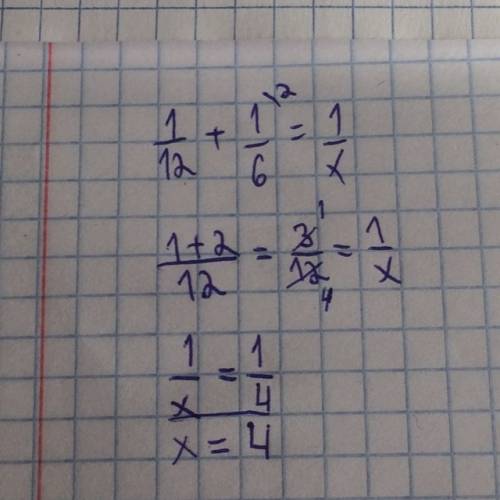 1/12 + 1\2/6 = 1/x
1+2/12 = 3 1/12 4 = 1/x
1/x = 1/4
x = 4